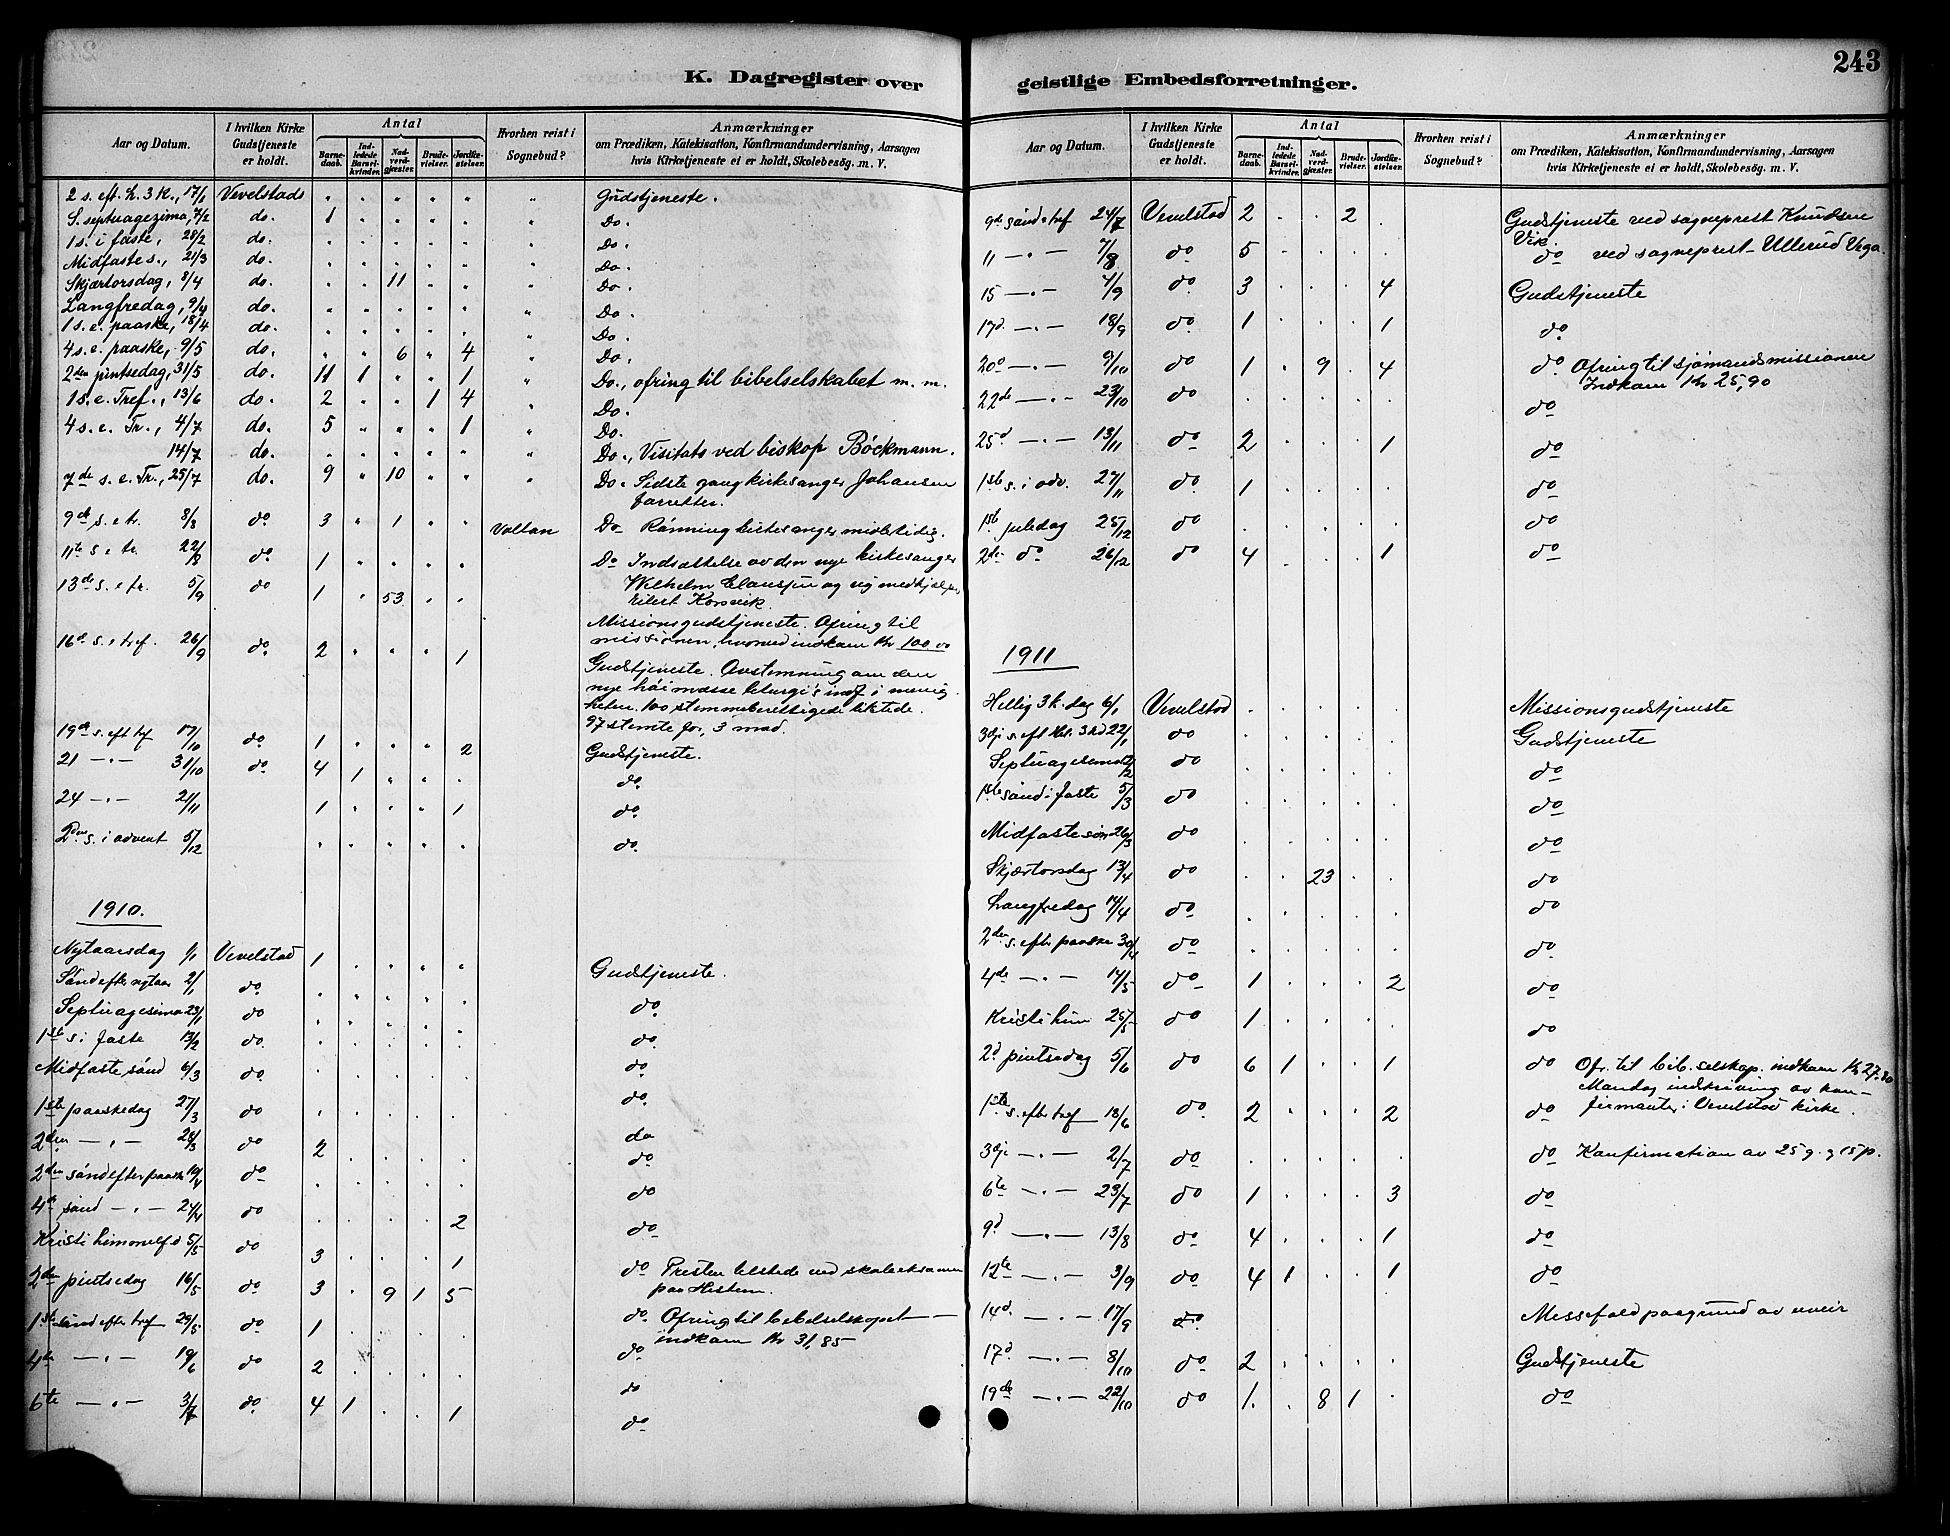 243
K. Dagregister over
geistlige Embedsforretninger.
Aar og Datum.
I hvilken Kirke Gudstjeneste er holdt.
Antal
Barnedaab.
Indledede Barselkvinder.
Nadverdgjester.
Brudevielser.
Jordfæstelser.
Hvorhen reist i Sognebud?
Anmærkninger
om Prædiken, Katekisation, Konfirmandundervisning, Aarsagen
hvis Kirketjeneste ei er holdt, Skolebesøg. m. V.
2 s. eft. h. 3 k., 17/1 Vevelstads " " " " " " Gudstjeneste.
S. septuagezima, 7/2 do. 1 " " " " " Do.
1 s. i faste, 28/2 do. " " " " " " Do.
Midfaste s., 21/3 do. " " " " " " Do.
Skjærtorsdag, 8/4 do. " " 11 " " " Do.
Langfredag, 9/4 do. " " " " " " Do.
1 s. e. paaske, 18/4 do. " " " " " " Do.
4 s. e. paaske, 9/5 do. " " 6 " 4 " Do.
2den pintsedag, 31/5 do. 11 1 " " 1 " Do., ofring til bibelselskabet m. m.
1 s. e. Tref., 13/6 do. 2 " " 1 4 " Do.
4 s. e. Tr., 4/7 do. 5 " " " 1 " Do.
14/7 do. " " " " " " Do., Visitats ved biskop Bøckmann.
7de s. e. Tr., 25/7 do. 9 " 10 " " " Do. Sidste gang kirkesanger Johansen
forretter.
9de s. e tr. 8/8 do 3 " 1 " " Do Rønning kirkesanger midlertidig.
11te s. e tr. 22/8 do 1 " " " " Do Indsættelse av den nye kirkesanger
Wilhelm Clausen og
13de s. e tr. 5/9 do 1 " 53 " "
Missionsgudstjeneste. Ofring til
missionen, hvorved indkom Kr 100,00
16de s. e tref. 26/9 do 2 " " " 1
Gudstjeneste. Avstemning om den
nye høimesse liturgi's indf i menig
heten. 100 stemmeberettigede
97 stemte for, 3 mod.
19de s. eft tref 17/10 do 1 " " " 2 Gudstjeneste.
21 — " — 31/10 do 4 1 " " " do.
24 — " — 21/11 1 " " " 1 do.
2den s. i advent 5/12 " " " " " do.
1910.
Nytaarsdag 1/1 Vevelstad 1 " " " " Gudstjeneste.
Sønd efter nytaar 2/1 do " " " " " do
Septuagesima 23/1 do " " " " " do
1ste s i faste 13/2 do. " " " " " do
Midfaste sønd 6/3 do. " " " " " do.
1ste paaskedag 27/3 do " " " " " do
2den — " — 28/3 do 2 " " " " do
2den sønd efter paaske 10/4 do " " " " " do
4de sønd — " — 24/4 do " " " " 2 do
Kristi himmelf.d 5/5 do 3 " " " 1
2den pintsedag 16/5 do 3 " 9 1 5 do Presten tilstede ved skoleeksamen
paa Hesten.
1ste sønd efter tref 29/5 do 1 " " " " do. Ofring til bibelselskapet —
indkom Kr 31,85
4de — " — 19/6 do 2 " " " " do
6te — " — 3/7 do. 4 1 " " 1 do
Aar og Datum.
I hvilken Kirke Gudstjeneste er holdt.
Antal
Barnedaab.
Indledede Barselkvinder.
Nadverdgjester.
Brudevielser.
Jordfæstelser.
Hvorhen reist i Sognebud?
Anmærkninger
om Prædiken, Katekisation, Konfirmandundervisning, Aarsagen
hvis Kirketjeneste ei er holdt, Skolebesøg. m. V.
9de sønd e tref 24/7 Vevelstad 2 " " 2 " Gudstjeneste ved sogneprest Knudsen
Vik.
11 — " — 7/8 do 5 " " " " do ved sogneprest Ullerud Vega.
15 — " — 4/9 do 3 " " " 4 Gudstjeneste
17d — " — 18/9 do 1 " " " 1 do
20d — " — 9/10 do 1 " 9 " 4 do Ofring til sjømandsmissionen
Indkom Kr 25,90
22de — " — 23/10 do " " " " " do
25d — " — 13/11 do 2 " " " 1 do
1ste s. i adv. 27/11 do 1 " " " " do
1ste juledag 25/12 do " " " " " do
2den do 26/12 do 4 " " " 1 do
1911
Hellig 3 k. dag 6/1 Vevelstad " " " " " Missionsgudstjeneste
3dje s. eft Hel. 3 kd 22/1 do " " " " " Gudstjeneste
Septuagesima do " " " " " do
1ste sønd i faste 5/3 do " " " " " do
Midfaste søn 26/3 do " " " " " do
Skjærtorsdag 13/4 do " " 23 " " do
Langfredag 14/4 do " " " " " do
2den s. efter paaske 30/4 do " " " " " do
4de — " — 14/5 do 1 " " " 2 do
Kristi him 25/5 do 1 " " " " do
2d pintsedag 5/6 do 6 1 " " 1 do Ofr. til bib. selskap. indkom Kr 27,80
Mandag indskrivning av kon-
firmanter i Vevelstad kirke.
1ste s. efter tref 18/6 do. 2 " " " 2 do
3dje — " — 2/7 do " " " " " do Konfirmation av 25 g. og 15 p.
6te — " — 23/7 do 1 " " " 3 do
9d — " — 13/8 do 4 " " " 1 do
12te — " — 3/9 do 4 1 " " 1 do
14d. — " — 17/9 do. Messefald paagrund av uveir
17d. — " — 8/10 do 2 " " " " Gudstjeneste
19de — " — 22/10 do 1. " 8 1 " do